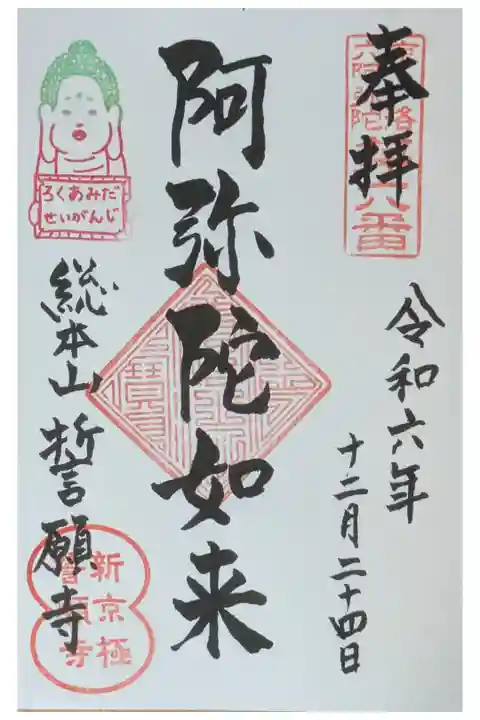 奉拝
令和六年
十二月二十四日
阿弥陀如来
ろくあみだ
せいがんじ
総本山誓願寺
新京極
誓願寺